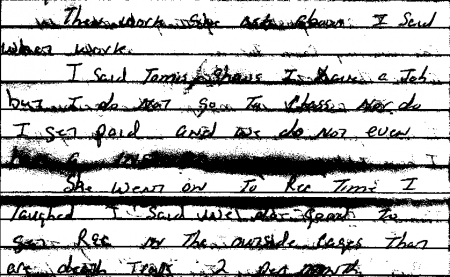 Then work. She ask about I said
what work.
I said Tomis shows I have a Job
but I do not go to class nor do
I get paid and we do not even
She went on to Rec Time I
laughed I said we do good to
get Rec in the outside cages that
are death traps 2 per month